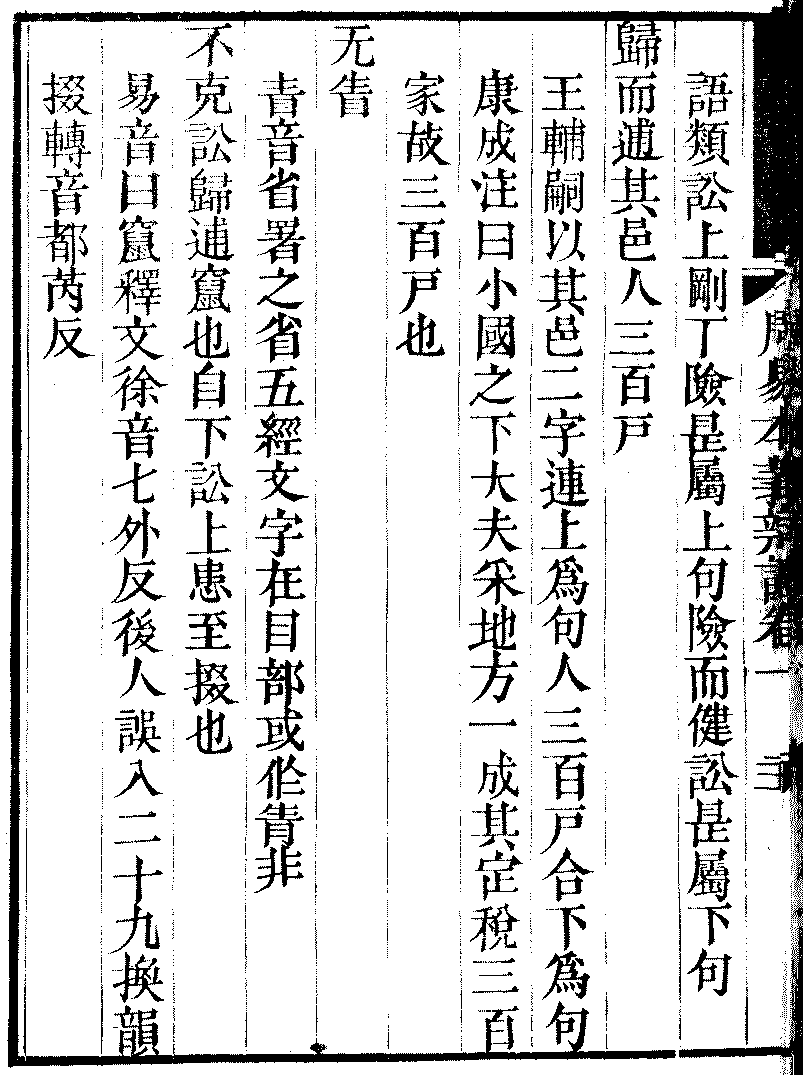 周易本義辨證卷一
三
語類訟上剛下險是屬上句險而健訟是屬下句
歸而逋其邑人三百戸
王輔嗣以其邑二字連上爲句人三百戸合下爲句
康成注曰小國之下大夫采地方一成其定稅三百
家故三百戸也
无眚
眚音省署之省五經文字在目部或作靑非
不克訟歸逋竄也自下訟上患至掇也
易音曰竄釋文徐音七外反後人誤入二十九換韻
掇轉音都芮反